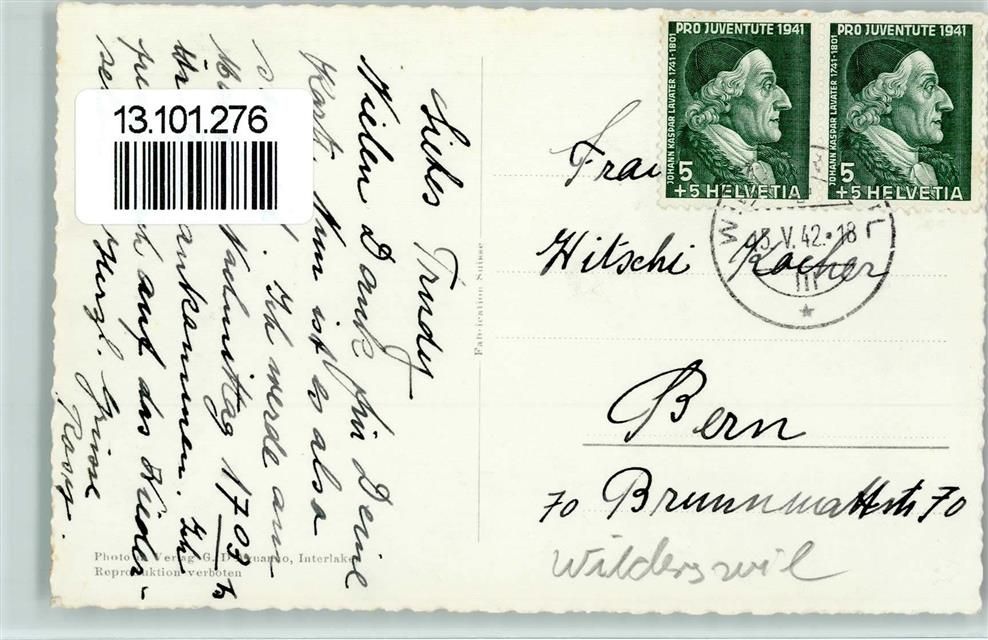 Liebes Trudy
Vielen Dank für Deine
Karte. Nun ist es also
Ich werde am
Nachmittag 1703 h
ankommen. Ich
auf das Wieder-
Herzl. Grüsse
Rosy.
13.101.276
Photo u. Verlag G. D'Aguanno, Interlaken
Reproduktion verboten
Fabrication Suisse
PRO JUVENTUTE 1941
JOHANN KASPAR LAVATER 1741-1801
5
+5 HELVETIA
PRO JUVENTUTE 1941
JOHANN KASPAR LAVATER 1741-1801
5
+5 HELVETIA
V. 42.-18
Frau
Witschi Kocher
Bern
70 Brunnmattstr. 70
Wilderswil